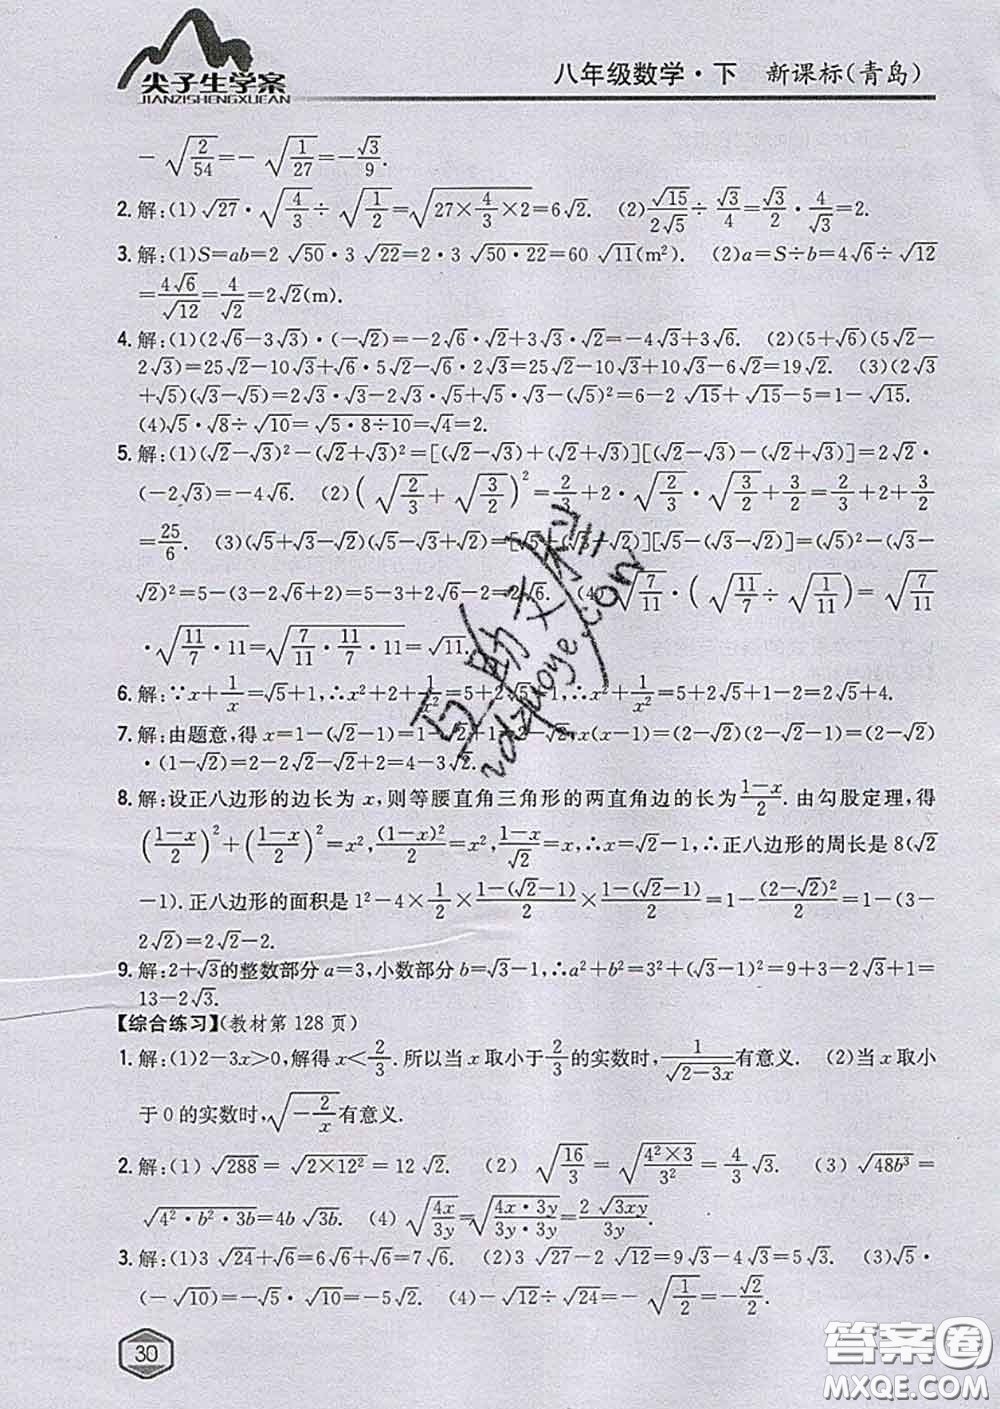 尖子生学案
JIANZISHENGXUEAN
八年级数学·下 新课标(青岛)
-√(2/54)=-√(1/27)=-√3/9.
2.解:(1)√27·√(4/3)÷√(1/2)=√(27×4/3×2)=6√2. (2)√15/(2√5)÷√3/4=√3/2·4/√3=2.
3.解:(1)S=ab=2√50·3√22=2·3√(50·22)=60√11(m²). (2)a=S÷b=4√6÷√12
=4√6/√12=4/√2=2√2(m).
4.解:(1)(2√6-3√3)·(-√2)=-2√6·√2+3√3·√2=-4√3+3√6. (2)(5+√6)(5√2-
2√3)=25√2-10√3+√6·5√2-√6·2√3=25√2-10√3+10√3-6√2=19√2. (3)(2√3
+√5)(√3-√5)=2√3·√3-2√3·√5+√5·√3-(√5)²=6-2√15+√15-5=1-√15.
(4)√5·√8÷√10=√(5·8÷10)=√4=2.
5.解:(1)(√2-√3)²-(√2+√3)²=[(√2-√3)+(√2+√3)][(√2-√3)-(√2+√3)]=2√2·
(-2√3)=-4√6. (2)(√(2/3)+√(3/2))²=2/3+2·√(2/3)·√(3/2)+3/2=2/3+2+3/2
=25/6. (3)(√5+√3-√2)(√5-√3+√2)=[√5+(√3-√2)][√5-(√3-√2)]=(√5)²-(√3-
√2)²=5-(3-2√6+2)=5-3+2√6-2=2√6. (4)√(7/11)·(√(11/7)÷√(1/11))=√(7/11)
·√(11/7·11)=√(7/11·11/7·11)=√11.
6.解:∵x+1/x=√5+1,∴x²+2+1/x²=5+2√5+1,∴x²+1/x²=5+2√5+1-2=2√5+4.
7.解:由题意,得x=1-(√2-1)=1-√2+1=2-√2,x(x-1)=(2-√2)(2-√2-1)=(2-√2)
·(1-√2)=2-2√2-√2+2=4-3√2.
8.解:设正八边形的边长为x,则等腰直角三角形的两直角边的长为(1-x)/2.由勾股定理,得
((1-x)/2)²+((1-x)/2)²=x²,(1-x)²/2=x²,(1-x)/√2=x,∴x=√2-1,∴正八边形的周长是8(√2
-1).正八边形的面积是1²-4×1/2×(1-(√2-1))/2×(1-(√2-1))/2=1-(2-√2)²/2=1-(3-
2√2)=2√2-2.
9.解:2+√3的整数部分a=3,小数部分b=√3-1,∴a²+b²=3²+(√3-1)²=9+3-2√3+1=
13-2√3.
【综合练习】(教材第128页)
1.解:(1)2-3x>0,解得x<2/3.所以当x取小于2/3的实数时,1/√(2-3x)有意义. (2)当x取小
于0的实数时,√(-2/x)有意义.
2.解:(1)√288=√(2×12²)=12√2. (2)√(16/3)=√((4²×3)/3²)=4/3√3. (3)√(48b³)=
√(4²·b²·3b)=4b√3b. (4)√(4x/3y)=√((4x·3y)/(3y·3y))=2√(3xy)/3y.
3.解:(1)3√24+√6=6√6+√6=7√6. (2)3√27-2√12=9√3-4√3=5√3. (3)√5·
(-√10)=-√5·√10=-5√2. (4)-√12÷√24=-√(1/2)=-√2/2.
30
互助文档
vdzuoye.com
答案圈
MXQE.COM